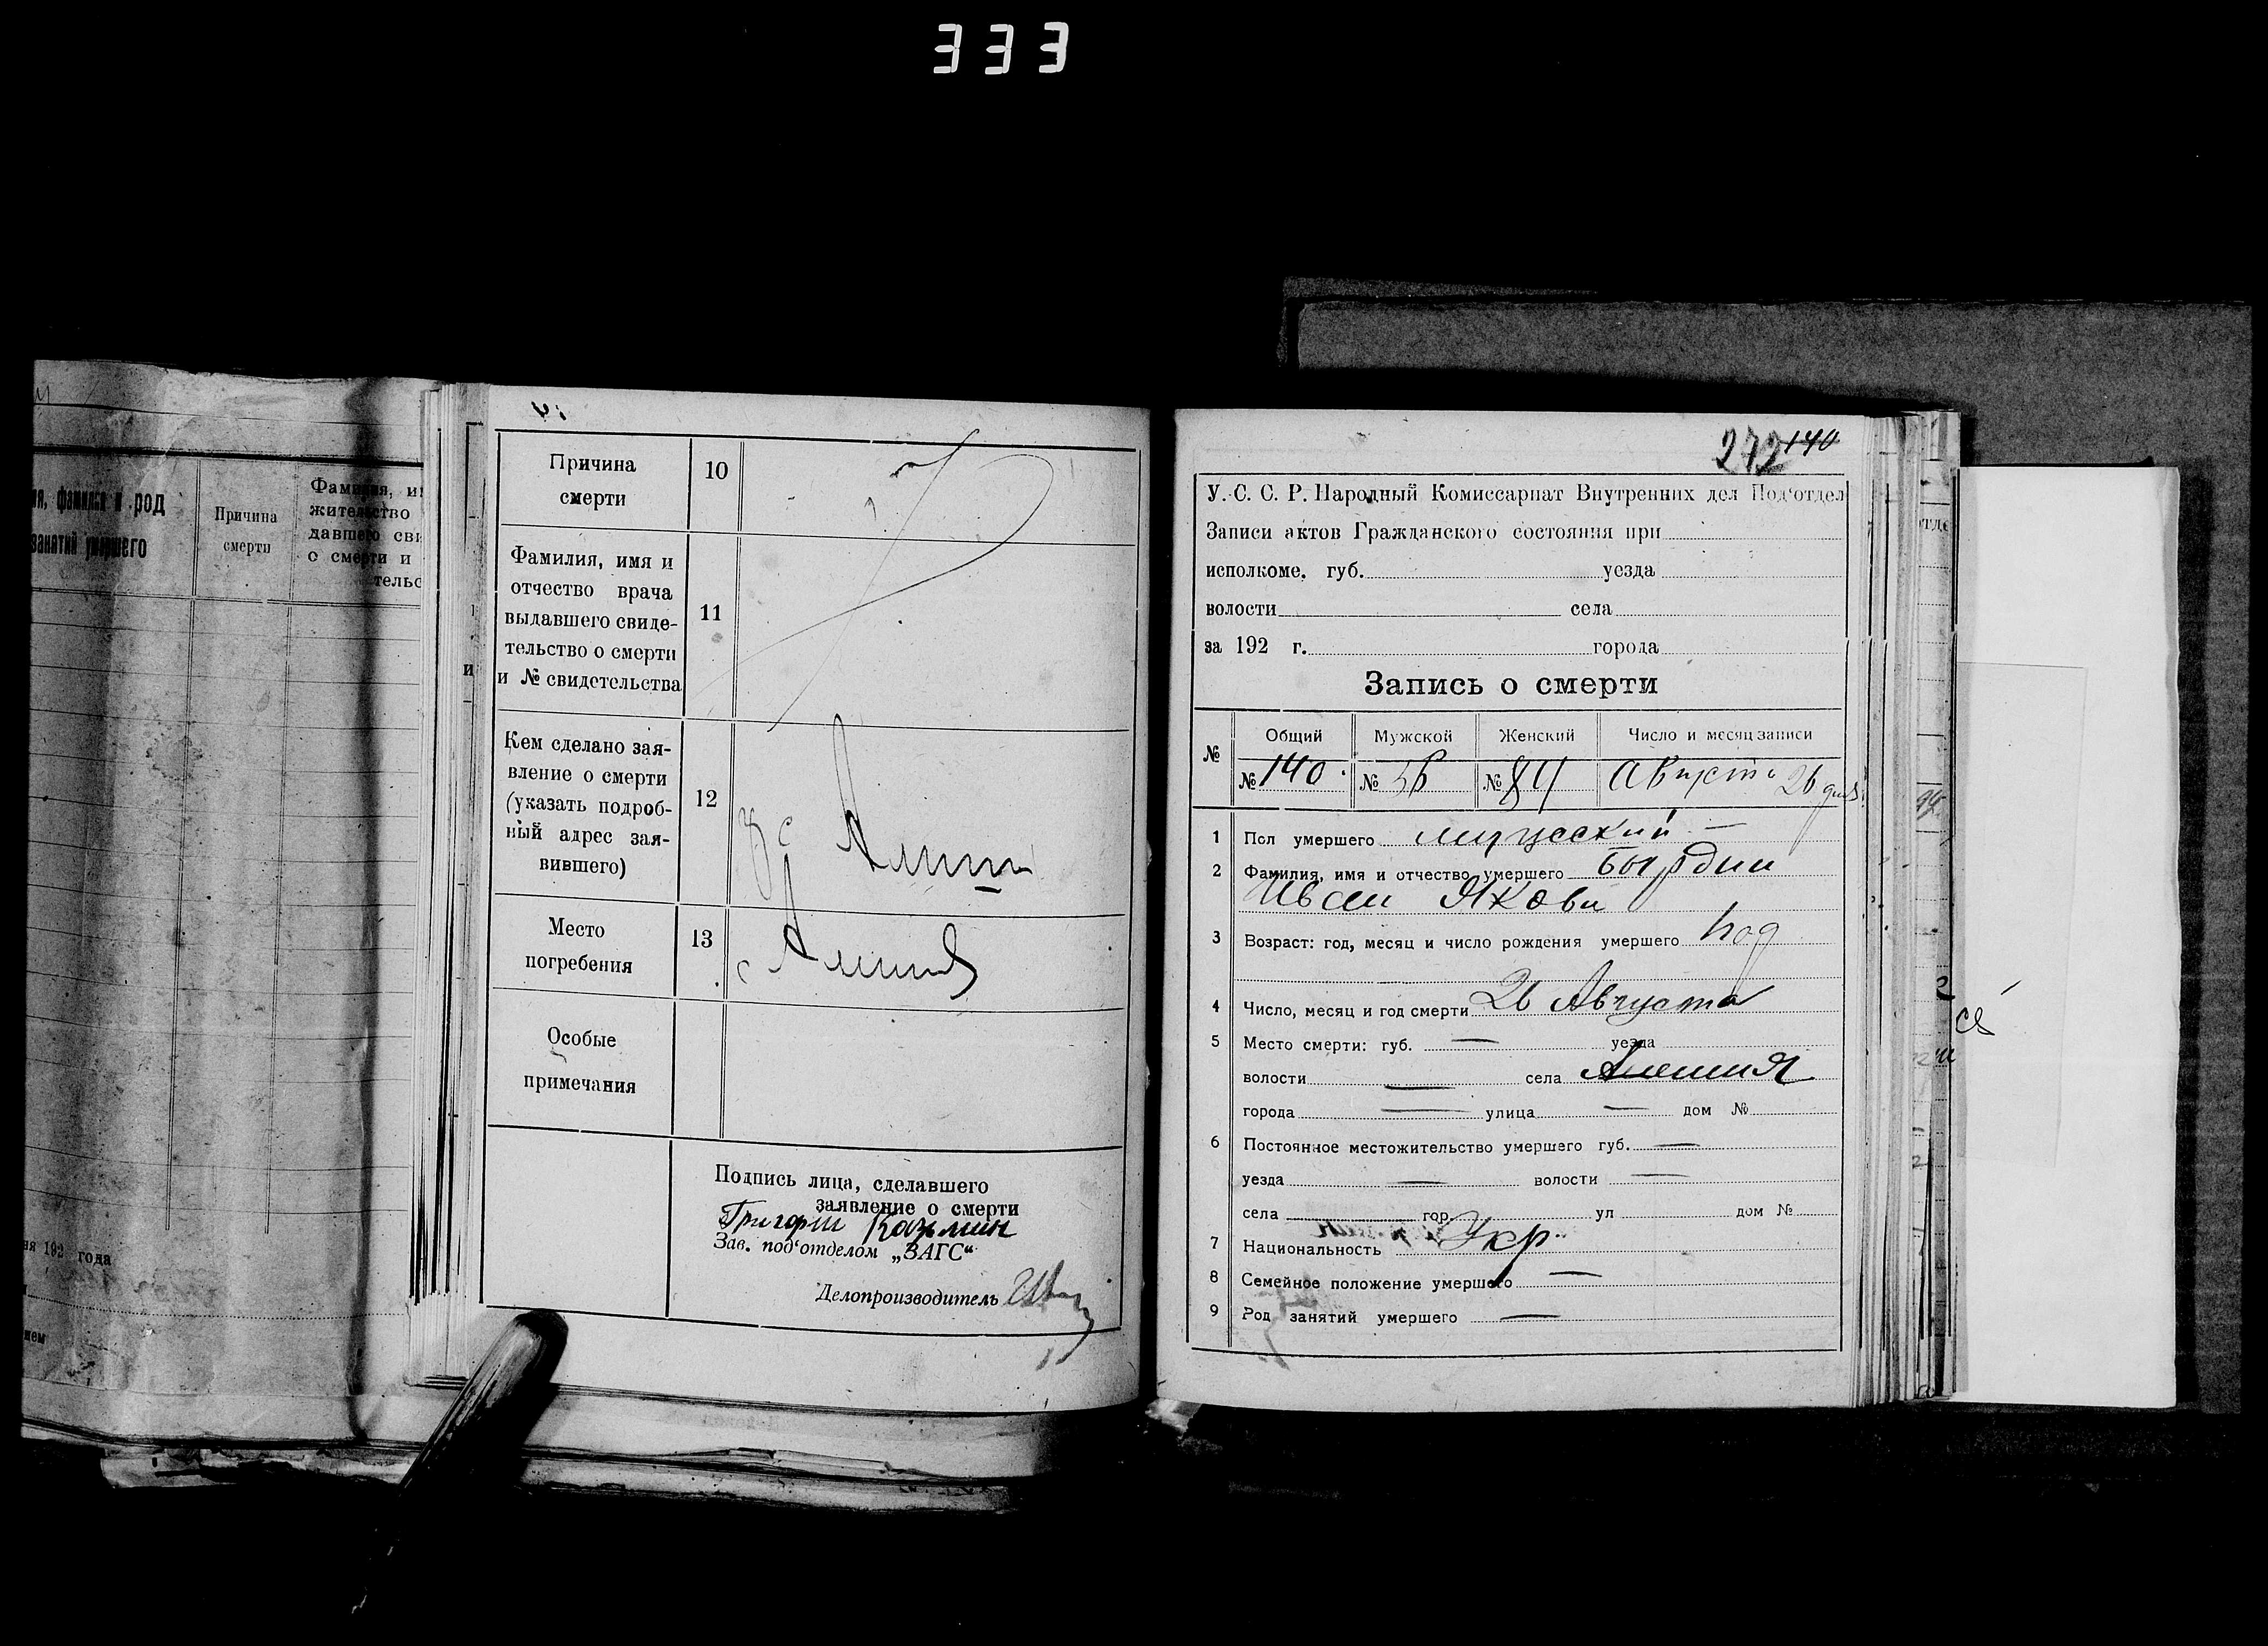 333
ия, фамилия и род
занятий умершего
Причина
смерти
жительство
о смерти и
года
Причина
смерти
10
Фамилия, имя и
отчество врача
выдавшего свиде-
тельство о смерти
и № свидетельства
11
Кем сделано зая-
вление о смерти
(указать подроб-
ный адрес зая-
вившего)
12
Место
погребения
13
с
Особые
примечания
Подпись лица, сделавшего
заявление о смерти
Григори
Зав. под‘отделом „ЗАГС“
Делопроизводитель
272 140
У. С. С. Р. Народный Комиссариат Внутренних дел Под‘отдел
Записи актов Гражданского состояния при
исполкоме. губ. уезда
волости села
за 192 г. города
Запись о смерти
№ Общий Мужской Женский Число и месяц записи
№ 140 № 56 № 84 Августа 26 дня
1 Пол умершего мужский
2 Фамилия, имя и отчество умершего
Иван Якови
3 Возраст: год, месяц и число рождения умершего год
4 Число, месяц и год смерти 26 Августа
5 Место смерти: губ. — уезда
волости — села
города — улица — дом №
6 Постоянное местожительство умершего губ. —
уезда — волости —
села гор. ул дом №
7 Национальность Укр.
8 Семейное положение умершего —
9 Род занятий умершего —